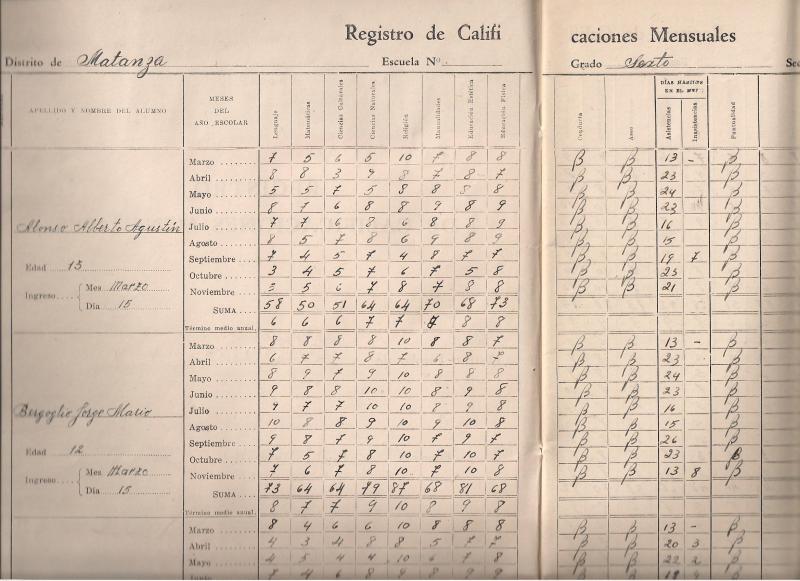 Registro de Califi caciones Mensuales
Distrito de Matanza Escuela Nº Grado Sexto
APELLIDO Y NOMBRE DEL ALUMNO MESES DEL AÑO ESCOLAR Lenguaje Matemáticas Ciencias Culturales Ciencias Naturales Religión Manualidades Educación Estética Educación Física Conducta Aseo DÍAS HÁBILES EN EL MES Asistencias Inasistencias Puntualidad
Alonso Alberto Agustín
Edad 13
Ingreso Mes Marzo
Día 15
Marzo 7 5 6 5 10 7 8 8 B B 13 - B
Abril 8 8 3 9 8 7 8 7 B B 23 B
Mayo 5 5 7 5 8 8 8 8 B B 24 B
Junio 8 7 6 8 8 9 8 9 B B 23 B
Julio 7 7 6 8 6 8 8 9 B B 16 B
Agosto 8 5 7 8 6 9 8 9 B B 15 B
Septiembre 7 4 5 7 4 8 7 7 B B 19 7 B
Octubre 3 4 5 7 6 7 5 8 B B 23 B
Noviembre 5 6 7 8 7 8 8 B B 21 B
SUMA 58 50 51 64 64 70 68 73
Término medio anual 6 6 6 7 7 7 8 8
Bergoglio Jorge Mario
Edad 12
Ingreso Mes Marzo
Día 15
Marzo 8 8 8 8 10 8 8 7 B B 13 - B
Abril 6 7 7 8 7 6 8 7 B B 23 B
Mayo 8 9 7 9 10 8 8 8 B B 24 B
Junio 9 8 8 10 10 8 9 8 B B 23 B
Julio 9 7 7 10 10 8 9 8 B B 16 B
Agosto 10 8 8 9 10 9 10 8 B B 15 B
Septiembre 9 8 7 9 10 7 9 7 B B 26 B
Octubre 7 5 7 8 10 7 10 7 B B 23 B
Noviembre 7 6 7 8 10 7 10 8 B B 13 8 B
SUMA 73 64 64 79 87 68 81 68
Término medio anual 8 7 7 9 10 8 9 8
Marzo 8 4 6 6 10 8 8 8 B B 13 - B
Abril 4 3 4 8 8 5 7 7 B B 20 3 B
Mayo 4 5 4 4 10 6 7 8 B B 22 2 B
Junio